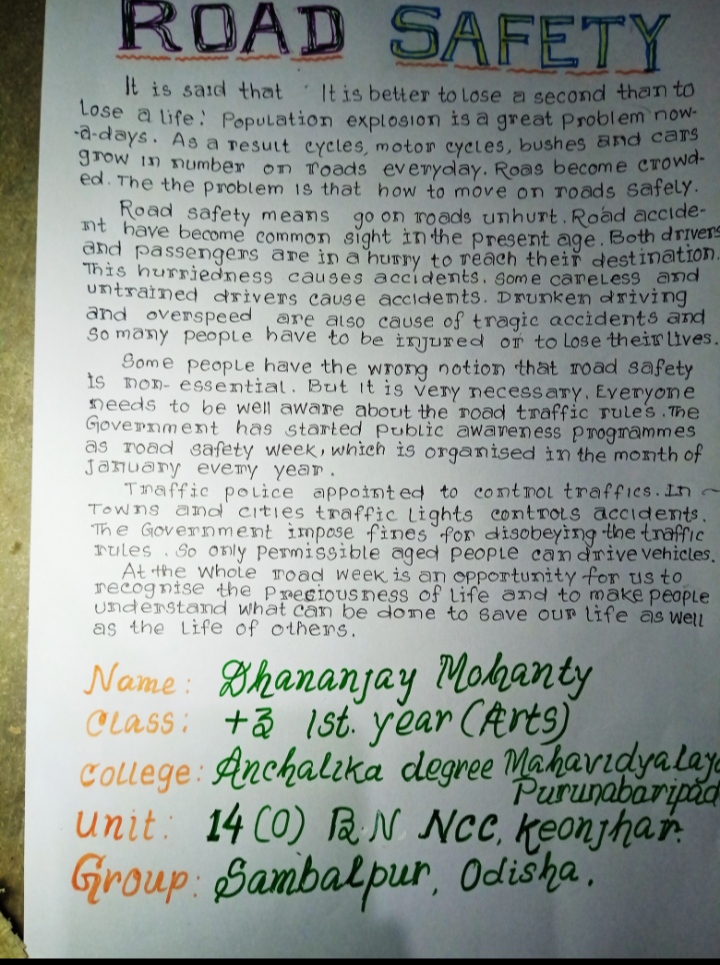 ROAD SAFETY
It is said that ' It is better to lose a second than to
lose a life.' Population explosion is a great problem now-
-a-days. As a result cycles, motor cycles, bushes and cars
grow in number on roads everyday. Roas become crowd-
ed. The the problem is that how to move on roads safely.
Road safety means go on roads unhurt. Road accide-
nt have become common sight in the present age. Both drivers
and passengers are in a hurry to reach their destination.
This hurriedness causes accidents. Some careless and
untrained drivers cause accidents. Drunken driving
and overspeed are also cause of tragic accidents and
so many people have to be injured or to lose their lives.
Some people have the wrong notion that road safety
is non- essential. But it is very necessary. Everyone
needs to be well aware about the road traffic rules. The
Government has started public awareness programmes
as road safety week, which is organised in the month of
January every year.
Traffic police appointed to control traffics. In
Towns and cities traffic lights controls accidents.
The Government impose fines for disobeying the traffic
rules . So only permissible aged people can drive vehicles.
At the whole road week is an opportunity for us to
recognise the preciousness of life and to make people
understand what can be done to save our life as well
as the life of others.
Name: Dhananjay Mohanty
Class: +3 1st. year (Arts)
College: Anchalika degree Mahavidyalaya
Purunabaripad
Unit: 14 (O) BN NCC, Keonjhar.
Group: Sambalpur, Odisha.